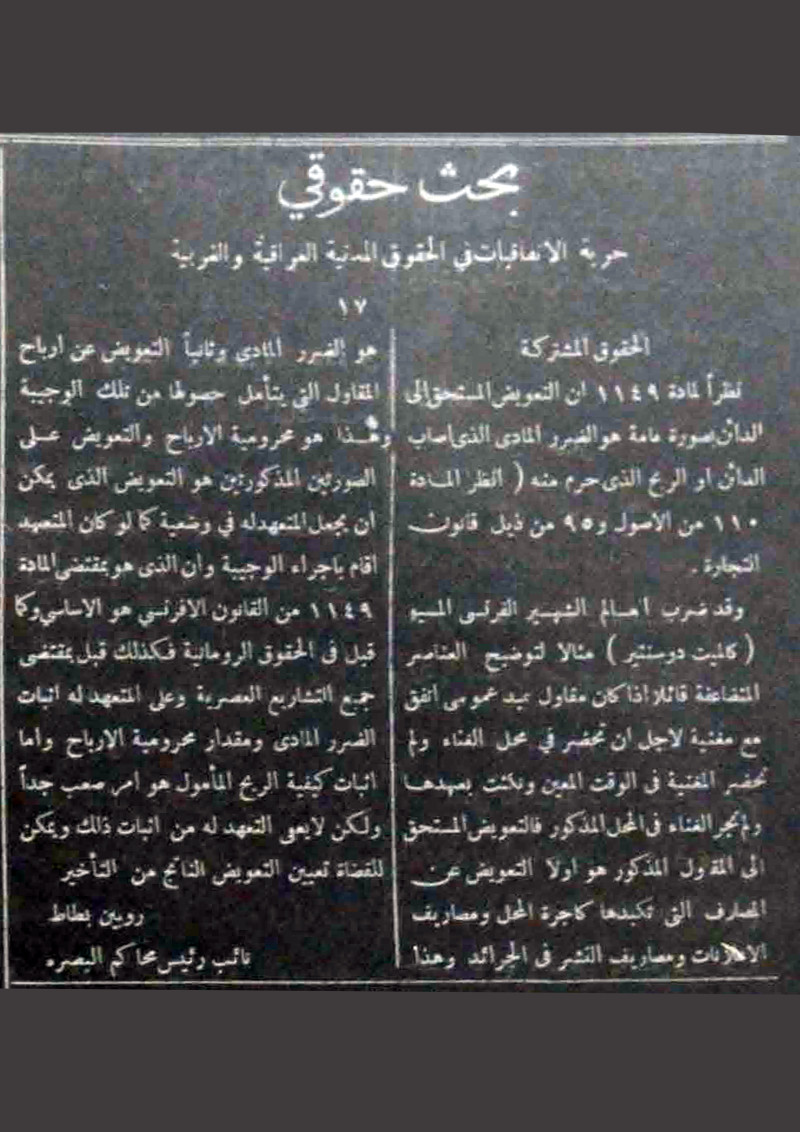 بحث حقوقي
حرية الاتفاقيات في الحقوق المدنية العراقية والغربية
١٧
الحقوق المشتركة
نظراً لمادة ١١٤٩ ان التعويض المستحق الى
الدائن بصورة عامة هو الضرر المادى الذى اصاب
الدائن او الربح الذى حرم منه ( انظر المادة
١١٠ من الاصول و٩٥ من ذيل قانون
التجارة .
وقد ضرب العالم الشهير الفرنسى المسيو
( كالميت دوسنتير ) مثالا لتوضيح العناصر
المتضاعفة قائلا اذا كان مقاول بعيد عمومى اتفق
مع مغنية لاجل ان تحضر في محل الغناء ولم
تحضر المغنية فى الوقت المعين ونكثت بعهدها
ولم تجر الغناء فى المحل المذكور فالتعويض المستحق
الى المقاول المذكور هو اولا التعويض عن
المصارف التى تكبدها كاجرة المحل ومصاريف
الاعلانات ومصاريف النشر فى الجرائد وهذا
هو الضرر المادى وثانياً التعويض عن ارباح
المقاول التي يتأمل حصولها من تلك الوجيبة
وهذا هو محرومية الارباح والتعويض على
الصورتين المذكورتين هو التعويض الذى يمكن
ان يجعل المتعهد له في وضعية كما لو كان المتعهد
اقام باجراء الوجيبة وان الذى هو بمقتضى المادة
١١٤٩ من القانون الافرنسي هو الاساسي وكما
قبل فى الحقوق الرومانية فكذلك قبل بمقتضى
جميع التشاريع العصرية وعلى المتعهد له اثبات
الضرر المادى ومقدار محرومية الارباح واما
اثبات كيفية الربح المأمول هو امر صعب جداً
ولكن لايعفى التعهد له من اثبات ذلك ويمكن
للقضاة تعيين التعويض الناتج من التأخير
روبين بطاط
نائب رئيس محاكم البصره